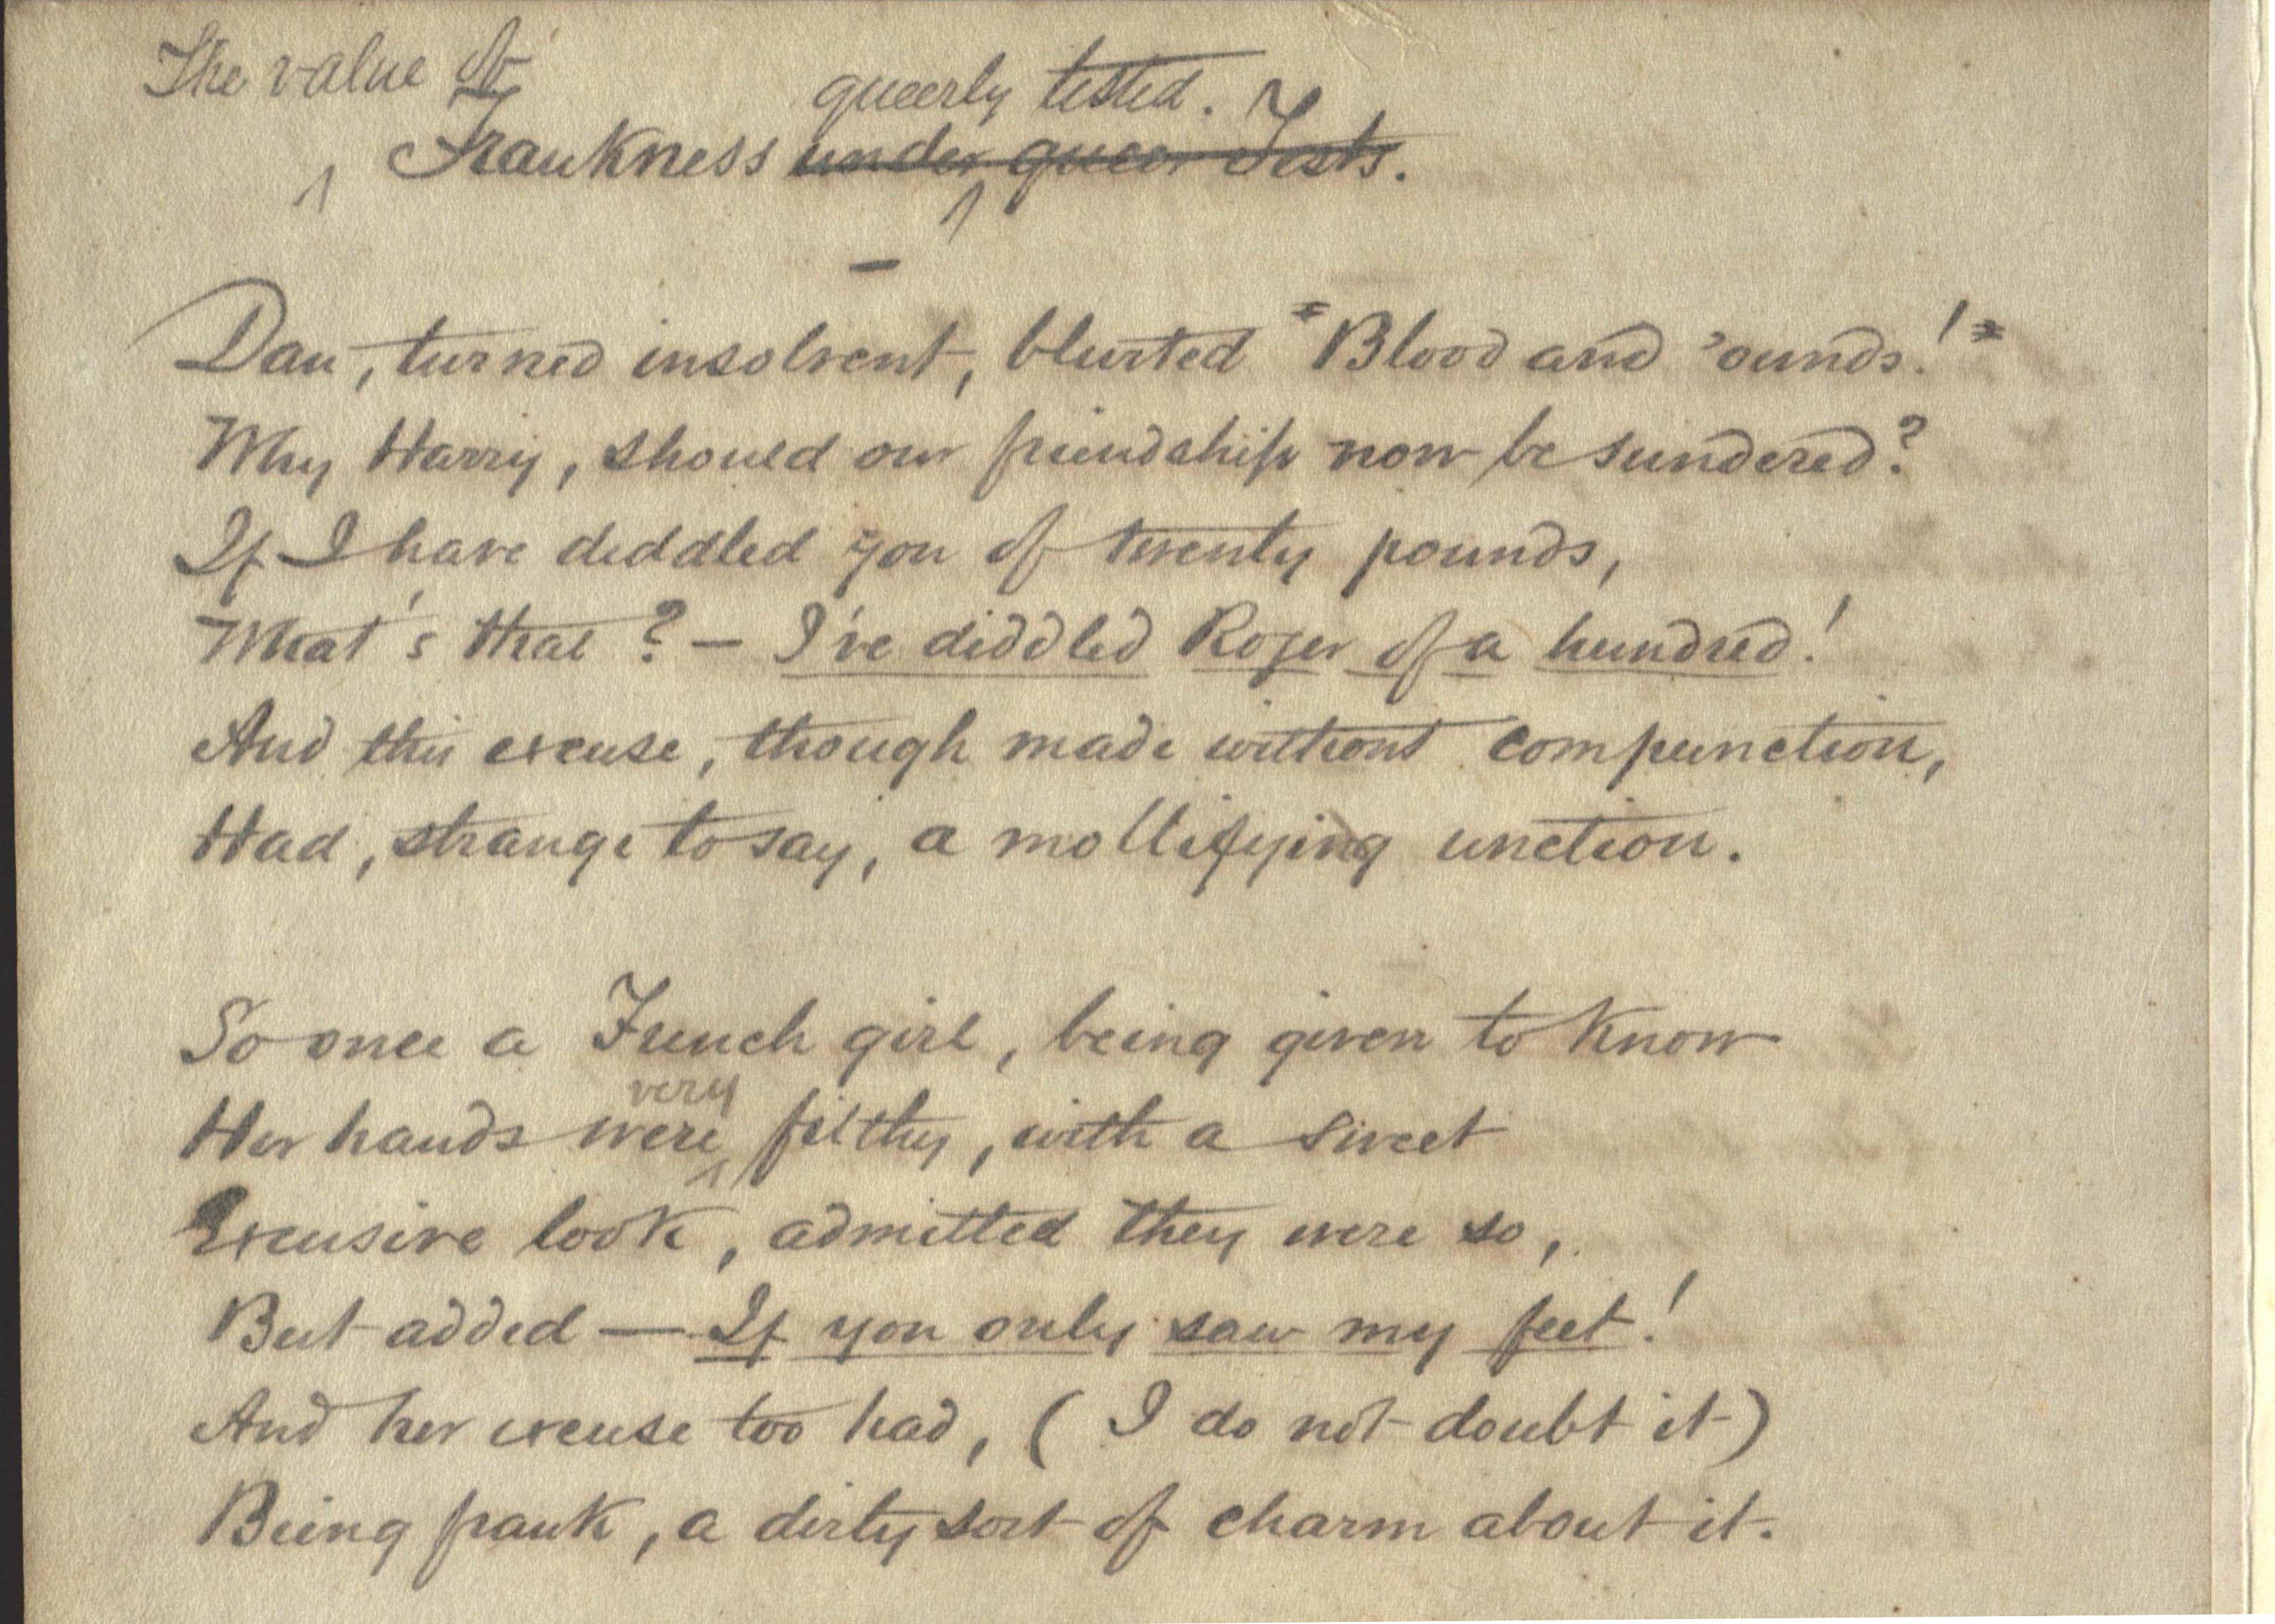 The value of queerly tested.
Frankness under queer Tests.
Dan, turned insolvent, blurted "Blood and 'ounds!"
Why Harry, should our friendship now be sundered?
If I have diddled you of twenty pounds,
What's that? — I've diddled Roger of a hundred!
And this excuse, though made without compunction,
Had, strange to say, a mollifying unction.
So once a French girl, being given to know
very
Her hands were filthy, with a sweet
Excusive look, admitted they were so,
But added — If you only saw my feet!
And her excuse too had, ( I do not doubt it )
Being frank, a dirty sort of charm about it.